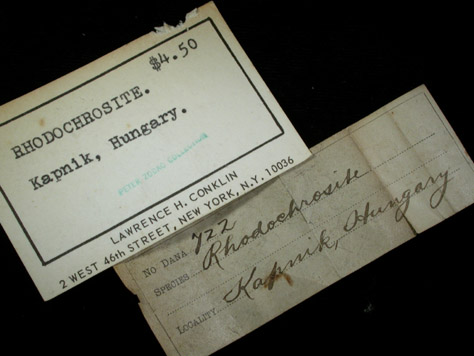 $4.50
RHODOCHROSITE.
Kapnik, Hungary.
LAWRENCE H. CONKLIN
2 WEST 46th STREET, NEW YORK, N.Y. 10036
No DANA 722
SPECIES Rhodochrosite
LOCALITY Kapnik, Hungary